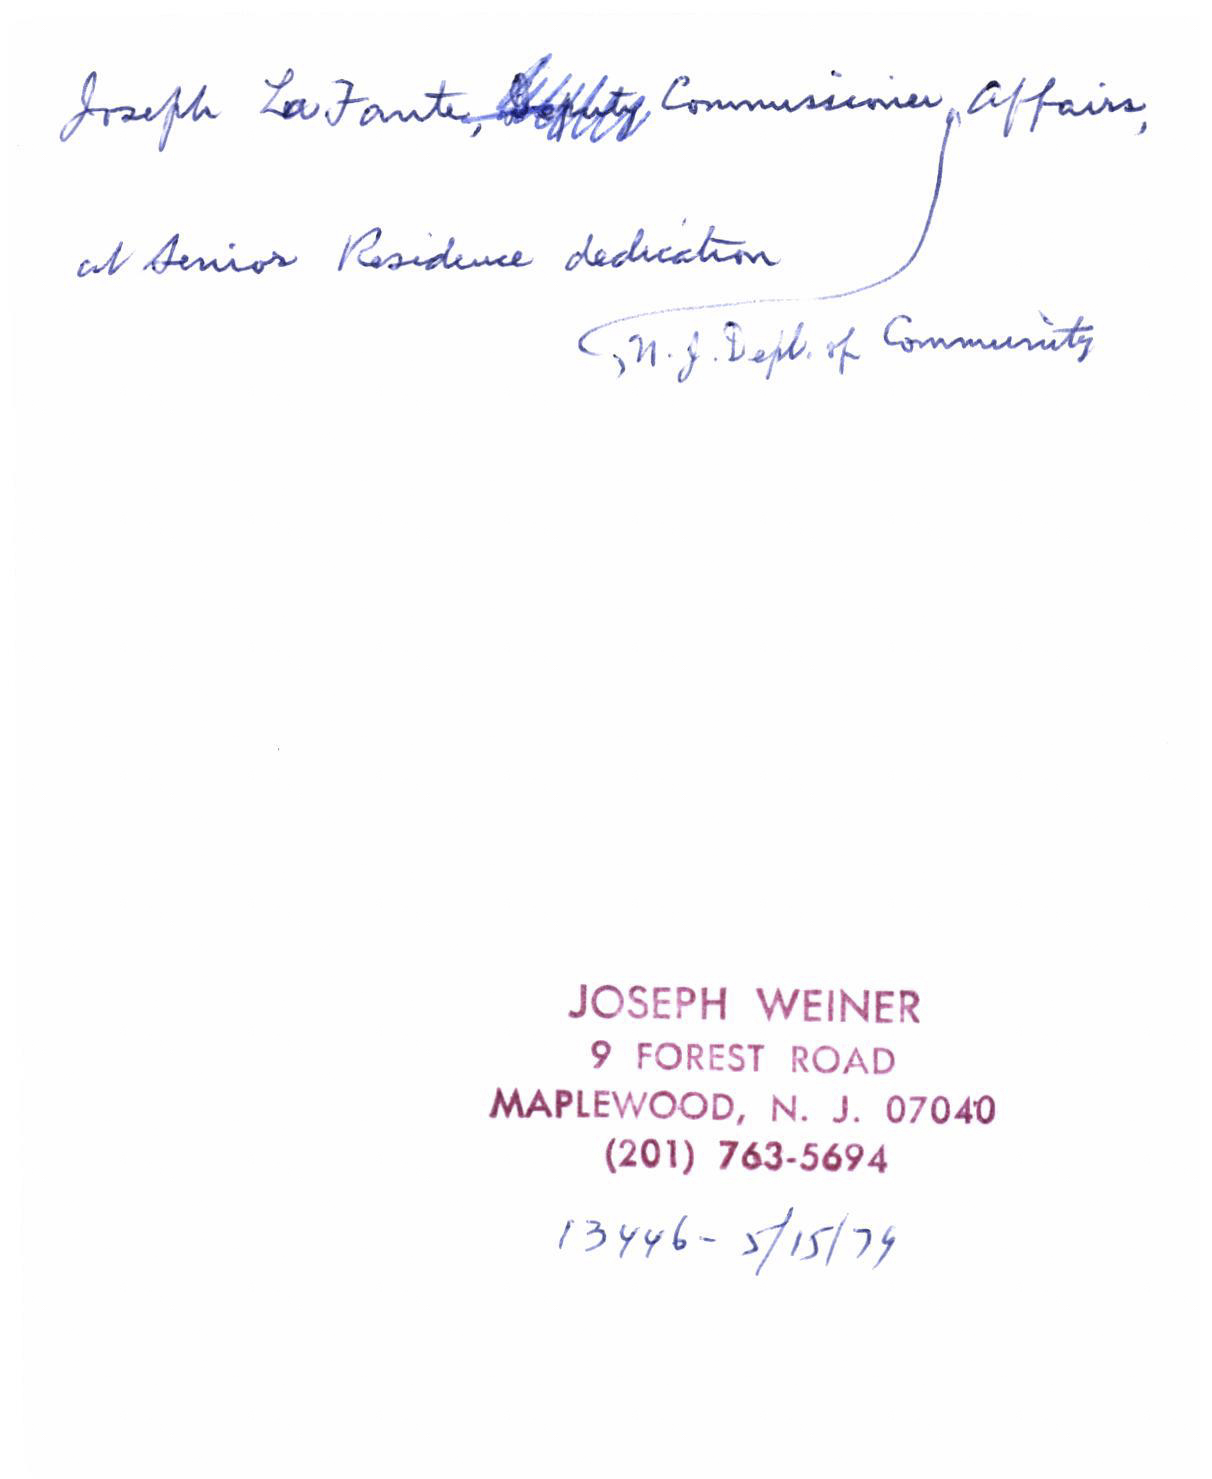 Joseph LaFante, Deputy Commissioner, Affairs,
at Senior Residence dedication
, N.J. Dept. of Community
JOSEPH WEINER
9 FOREST ROAD
MAPLEWOOD, N. J. 07040
(201) 763-5694
13446 - 5/15/79